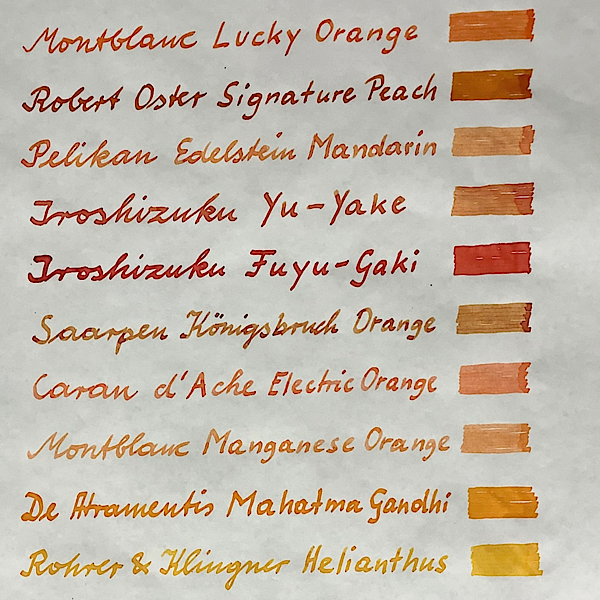 Montblanc Lucky Orange
Robert Oster Signature Peach
Pelikan Edelstein Mandarin
Iroshizuku Yu-Yake
Iroshizuku Fuyu-Gaki
Saarpen Königsbruch Orange
Caran d'Ache Electric Orange
Montblanc Manganese Orange
De Atramentis Mahatma Gandhi
Rohrer & Klingner Helianthus